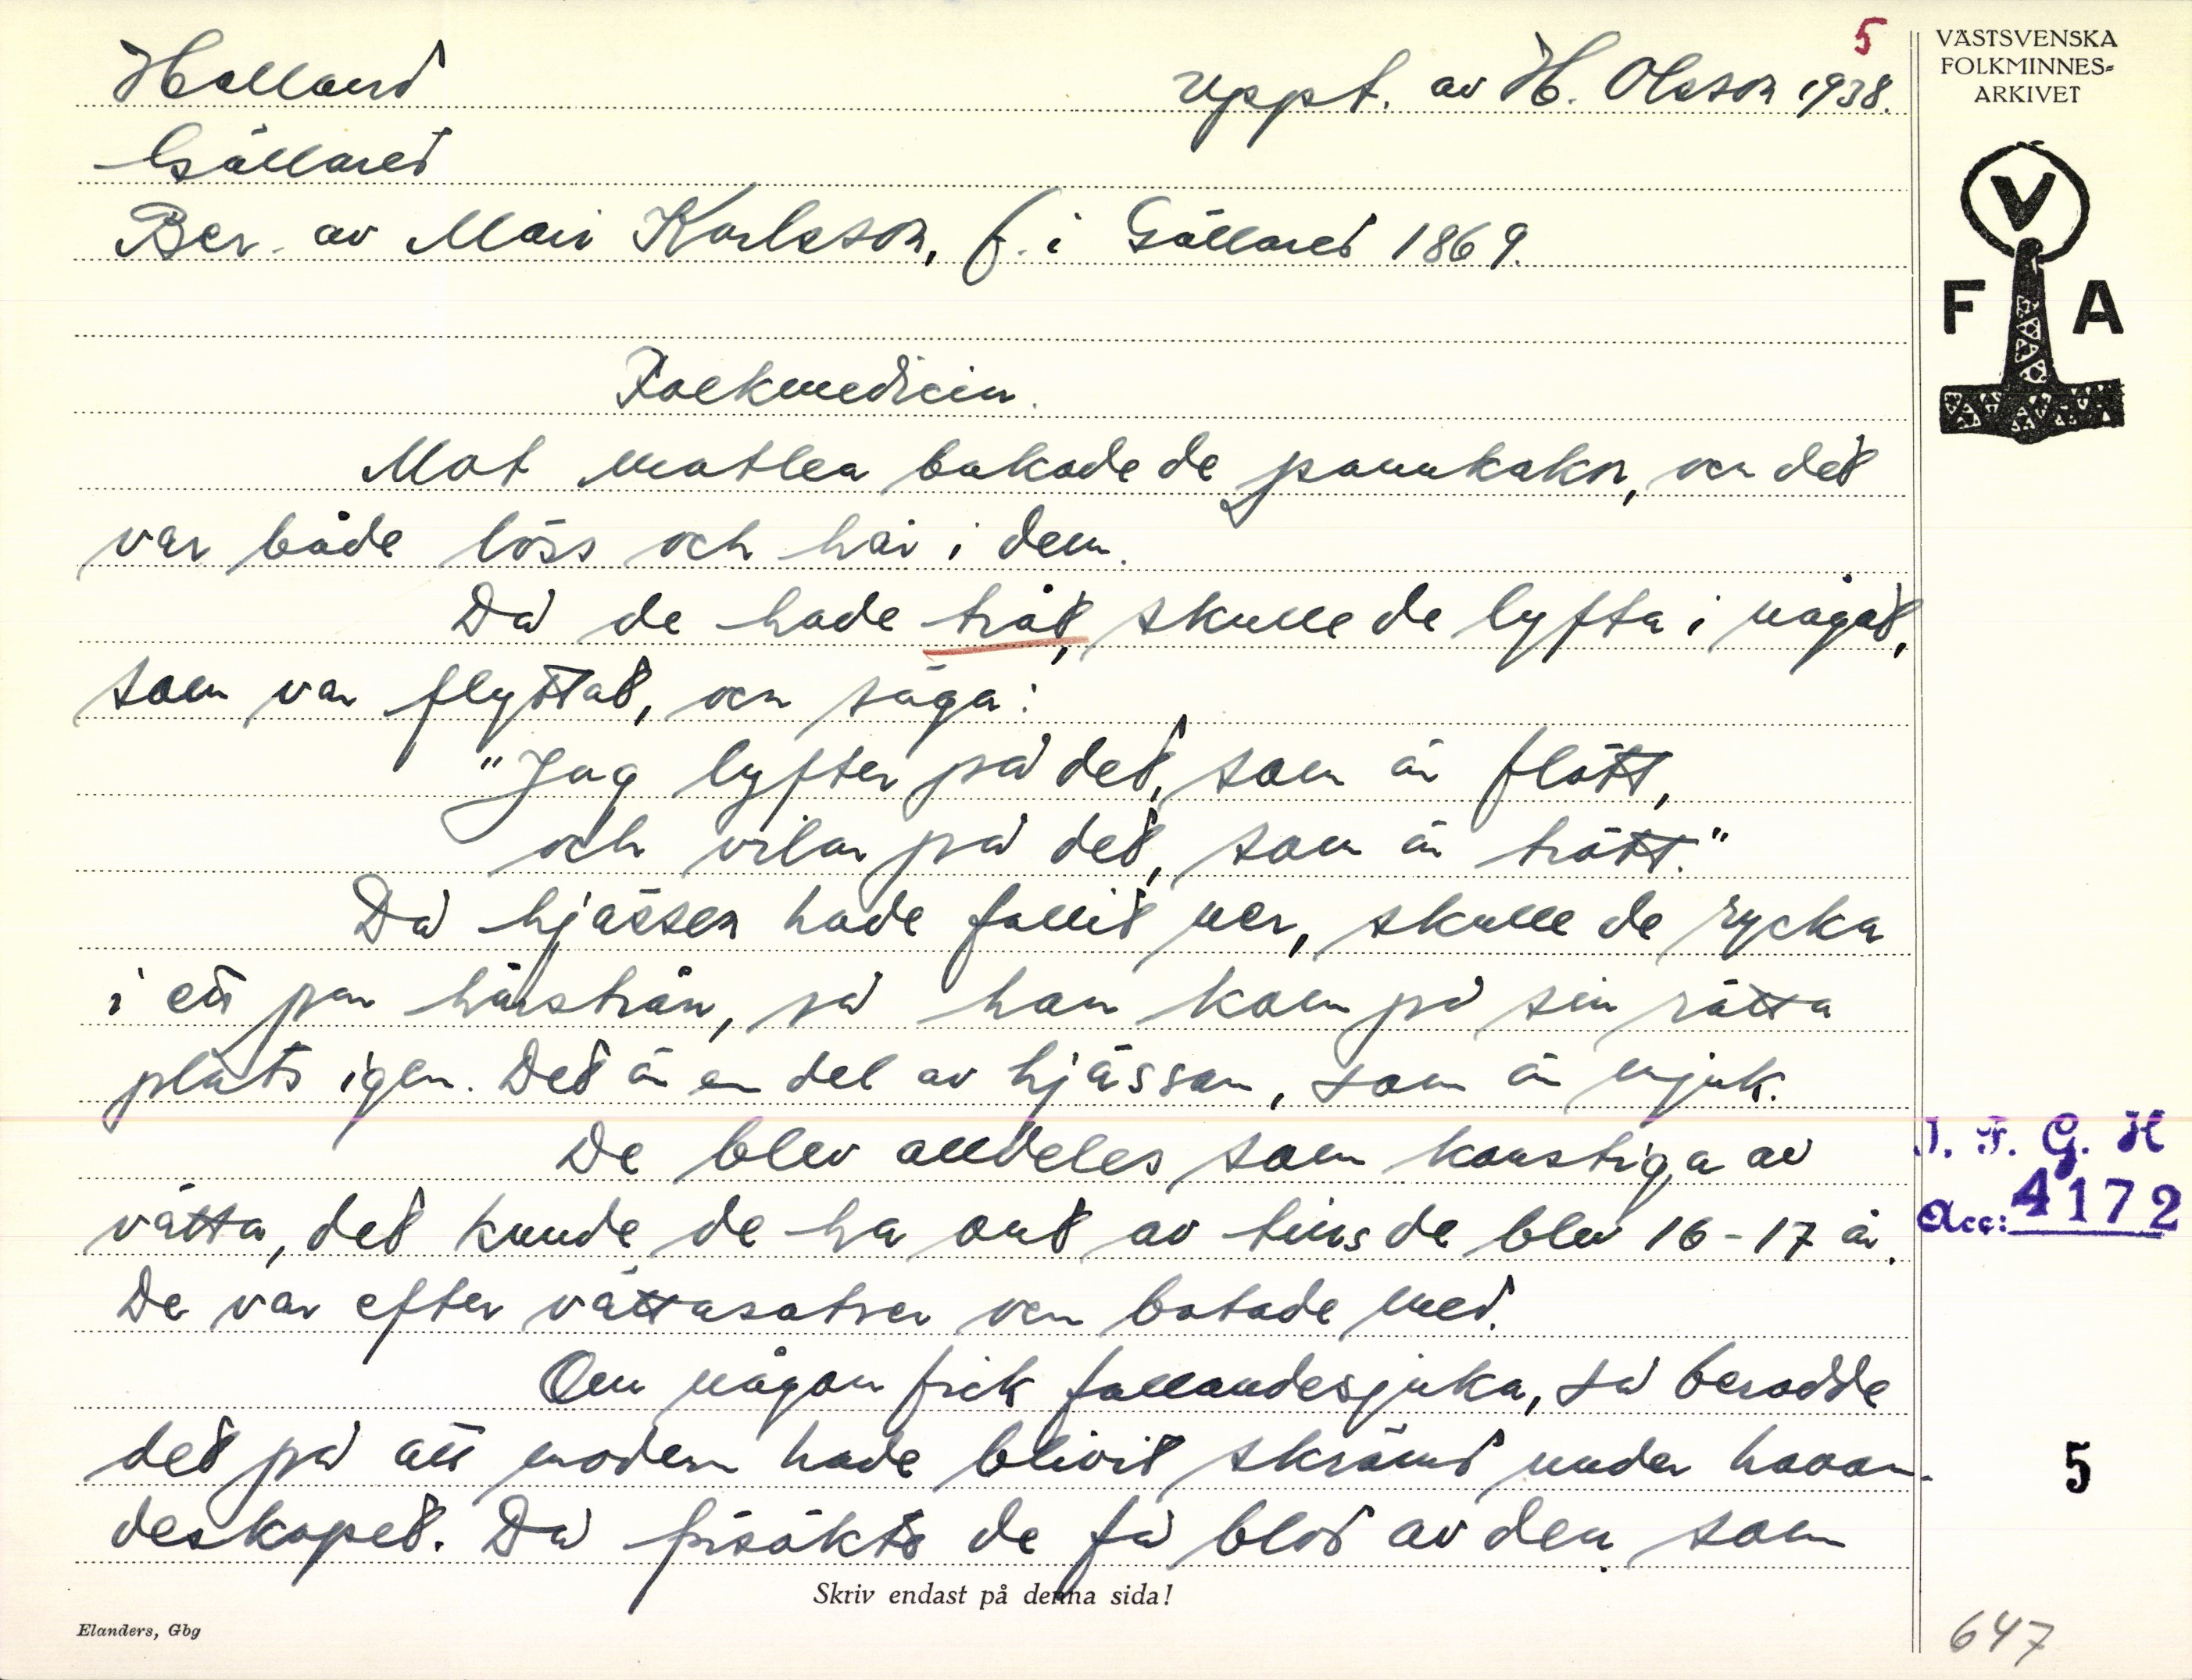 5
Halland uppt. av H. Olsson 1938.
Gällared
Ber. av Mari Karlsson, f. i Gällared 1869.
Folkmedicin.
Mot matlea bakade de pannkakor, och det
var både löss och hår i dem.
Då de hade tråt, skulle de lyfta i något,
som var flyttat, och säga:
"Jag lyfter på det, som är flött,
och vilar på det, som är trött."
Då hjässen hade fallit ner, skulle de rycka
i ett par hårstrån, så han kom på sin rätta
plats igen. Det är en del av hjässan, som är mjuk.
De blev alldeles som konstiga av
vätta, det kunde de ha ont av tills de blev 16-17 år.
De var efter vättasatser och botade med.
Om någon fick fallandesjuka, så berodde
det på att modern hade blivit skrämd under havan-
deskapet. Då försökte de få blod av den som
Skriv endast på denna sida!
Elanders, Gbg
VÄSTSVENSKA
FOLKMINNES-
ARKIVET
V
F A
I. F. G. H
Acc: 4172
5
647